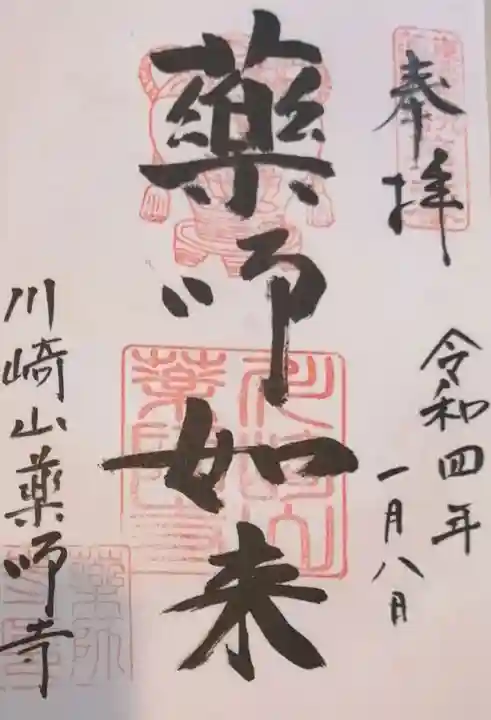 奉拝
令和四年
一月八月
薬師如来
川崎山薬師寺